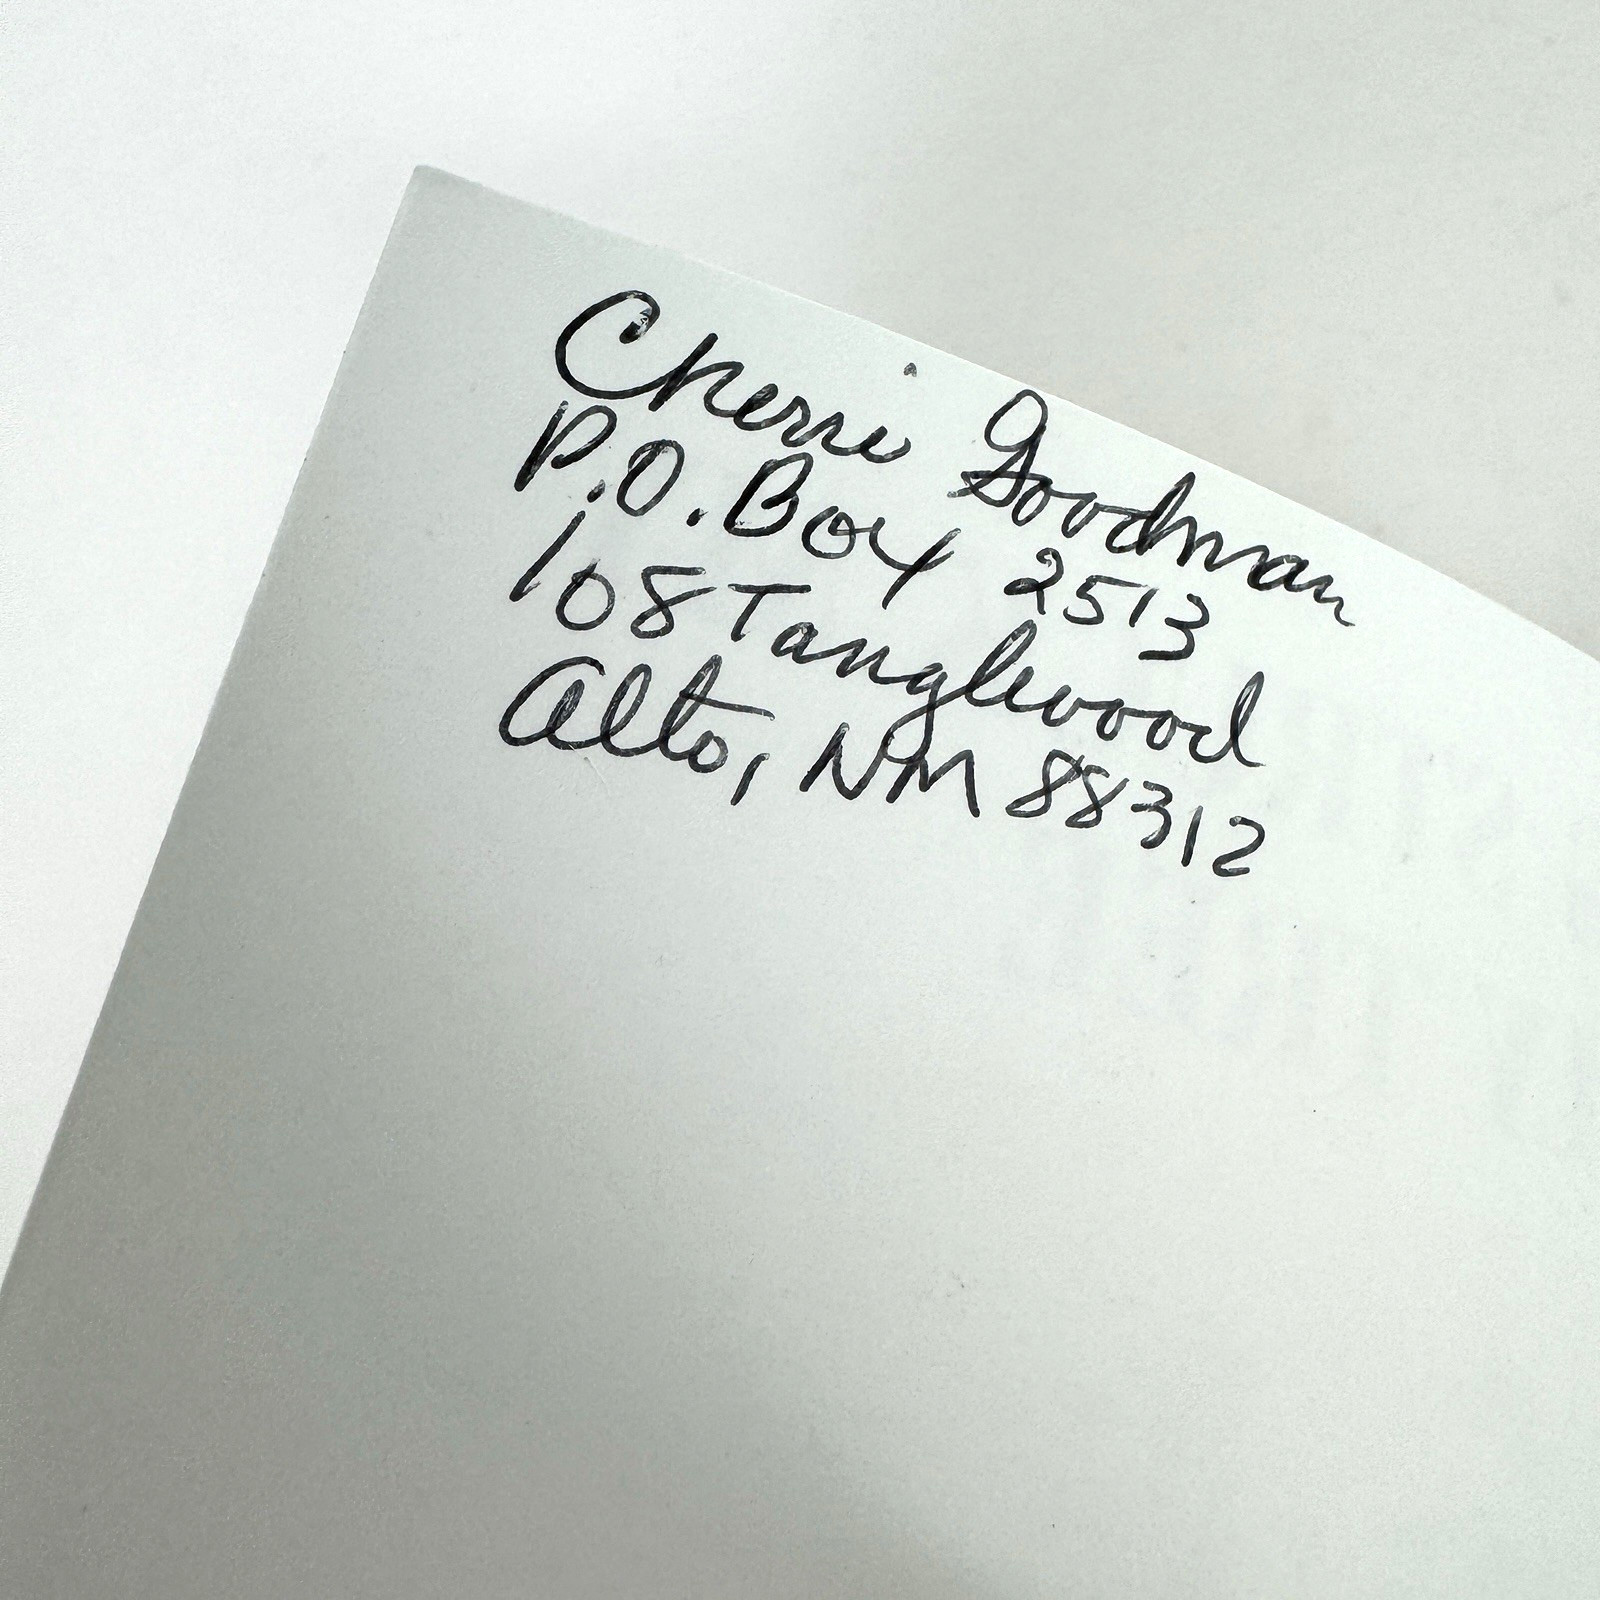 Cherri Goodman
P.O. Box 2513
108 Tanglwood
Alto, NM 88312